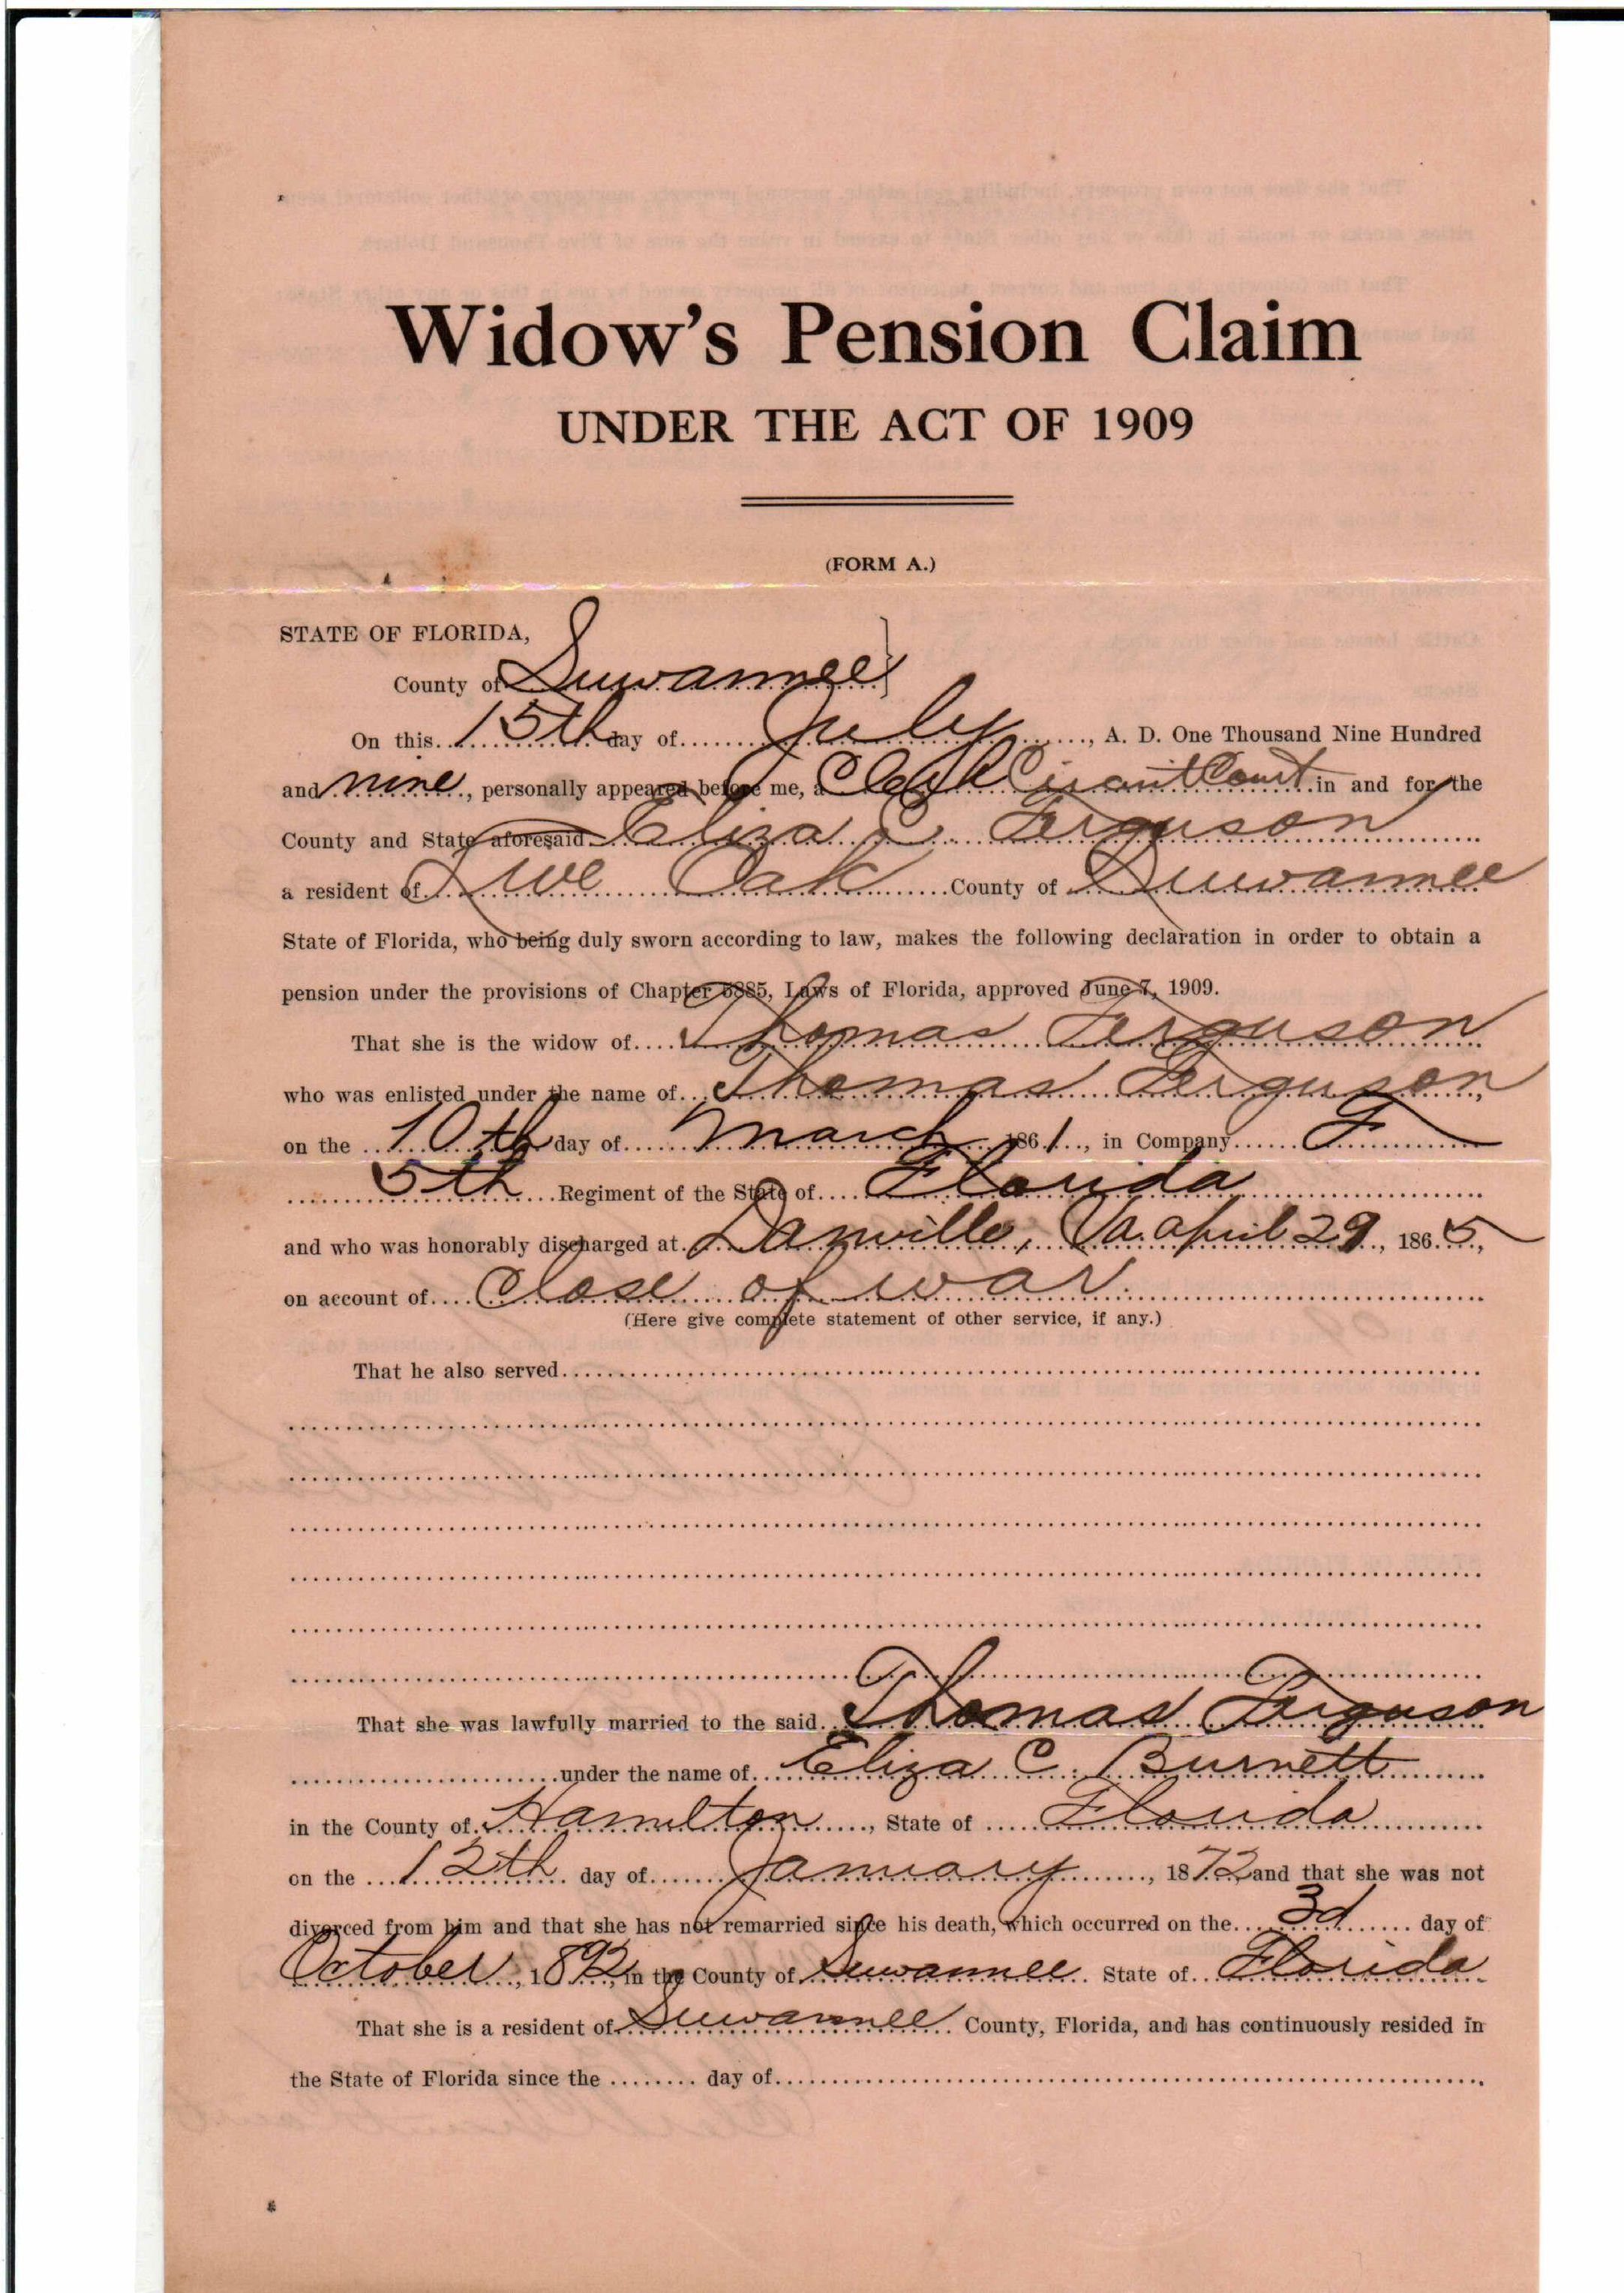 Widow's Pension Claim
UNDER THE ACT OF 1909
(FORM A.)
STATE OF FLORIDA,
County of Suwannee
On this 15th day of July, A. D. One Thousand Nine Hundred
and nine, personally appeared before me, a Clerk Circuit Court in and for the
County and State aforesaid Eliza C. Ferguson
a resident of Live Oak County of Suwannee
State of Florida, who being duly sworn according to law, makes the following declaration in order to obtain a
pension under the provisions of Chapter 5885, Laws of Florida, approved June 7, 1909.
That she is the widow of Thomas Ferguson
who was enlisted under the name of Thomas Ferguson,
on the 10th day of March 1861, in Company F
5th Regiment of the State of Florida
and who was honorably discharged at Danville, Va. april 29, 1865,
on account of Close of war.
(Here give complete statement of other service, if any.)
That he also served
That she was lawfully married to the said Thomas Ferguson
under the name of Eliza C. Burnett
in the County of Hamilton, State of Florida
on the 12th day of January, 1872 and that she was not
divorced from him and that she has not remarried since his death, which occurred on the 3d day of
October, 1892, in the County of Suwannee State of Florida
That she is a resident of Suwannee County, Florida, and has continuously resided in
the State of Florida since the day of